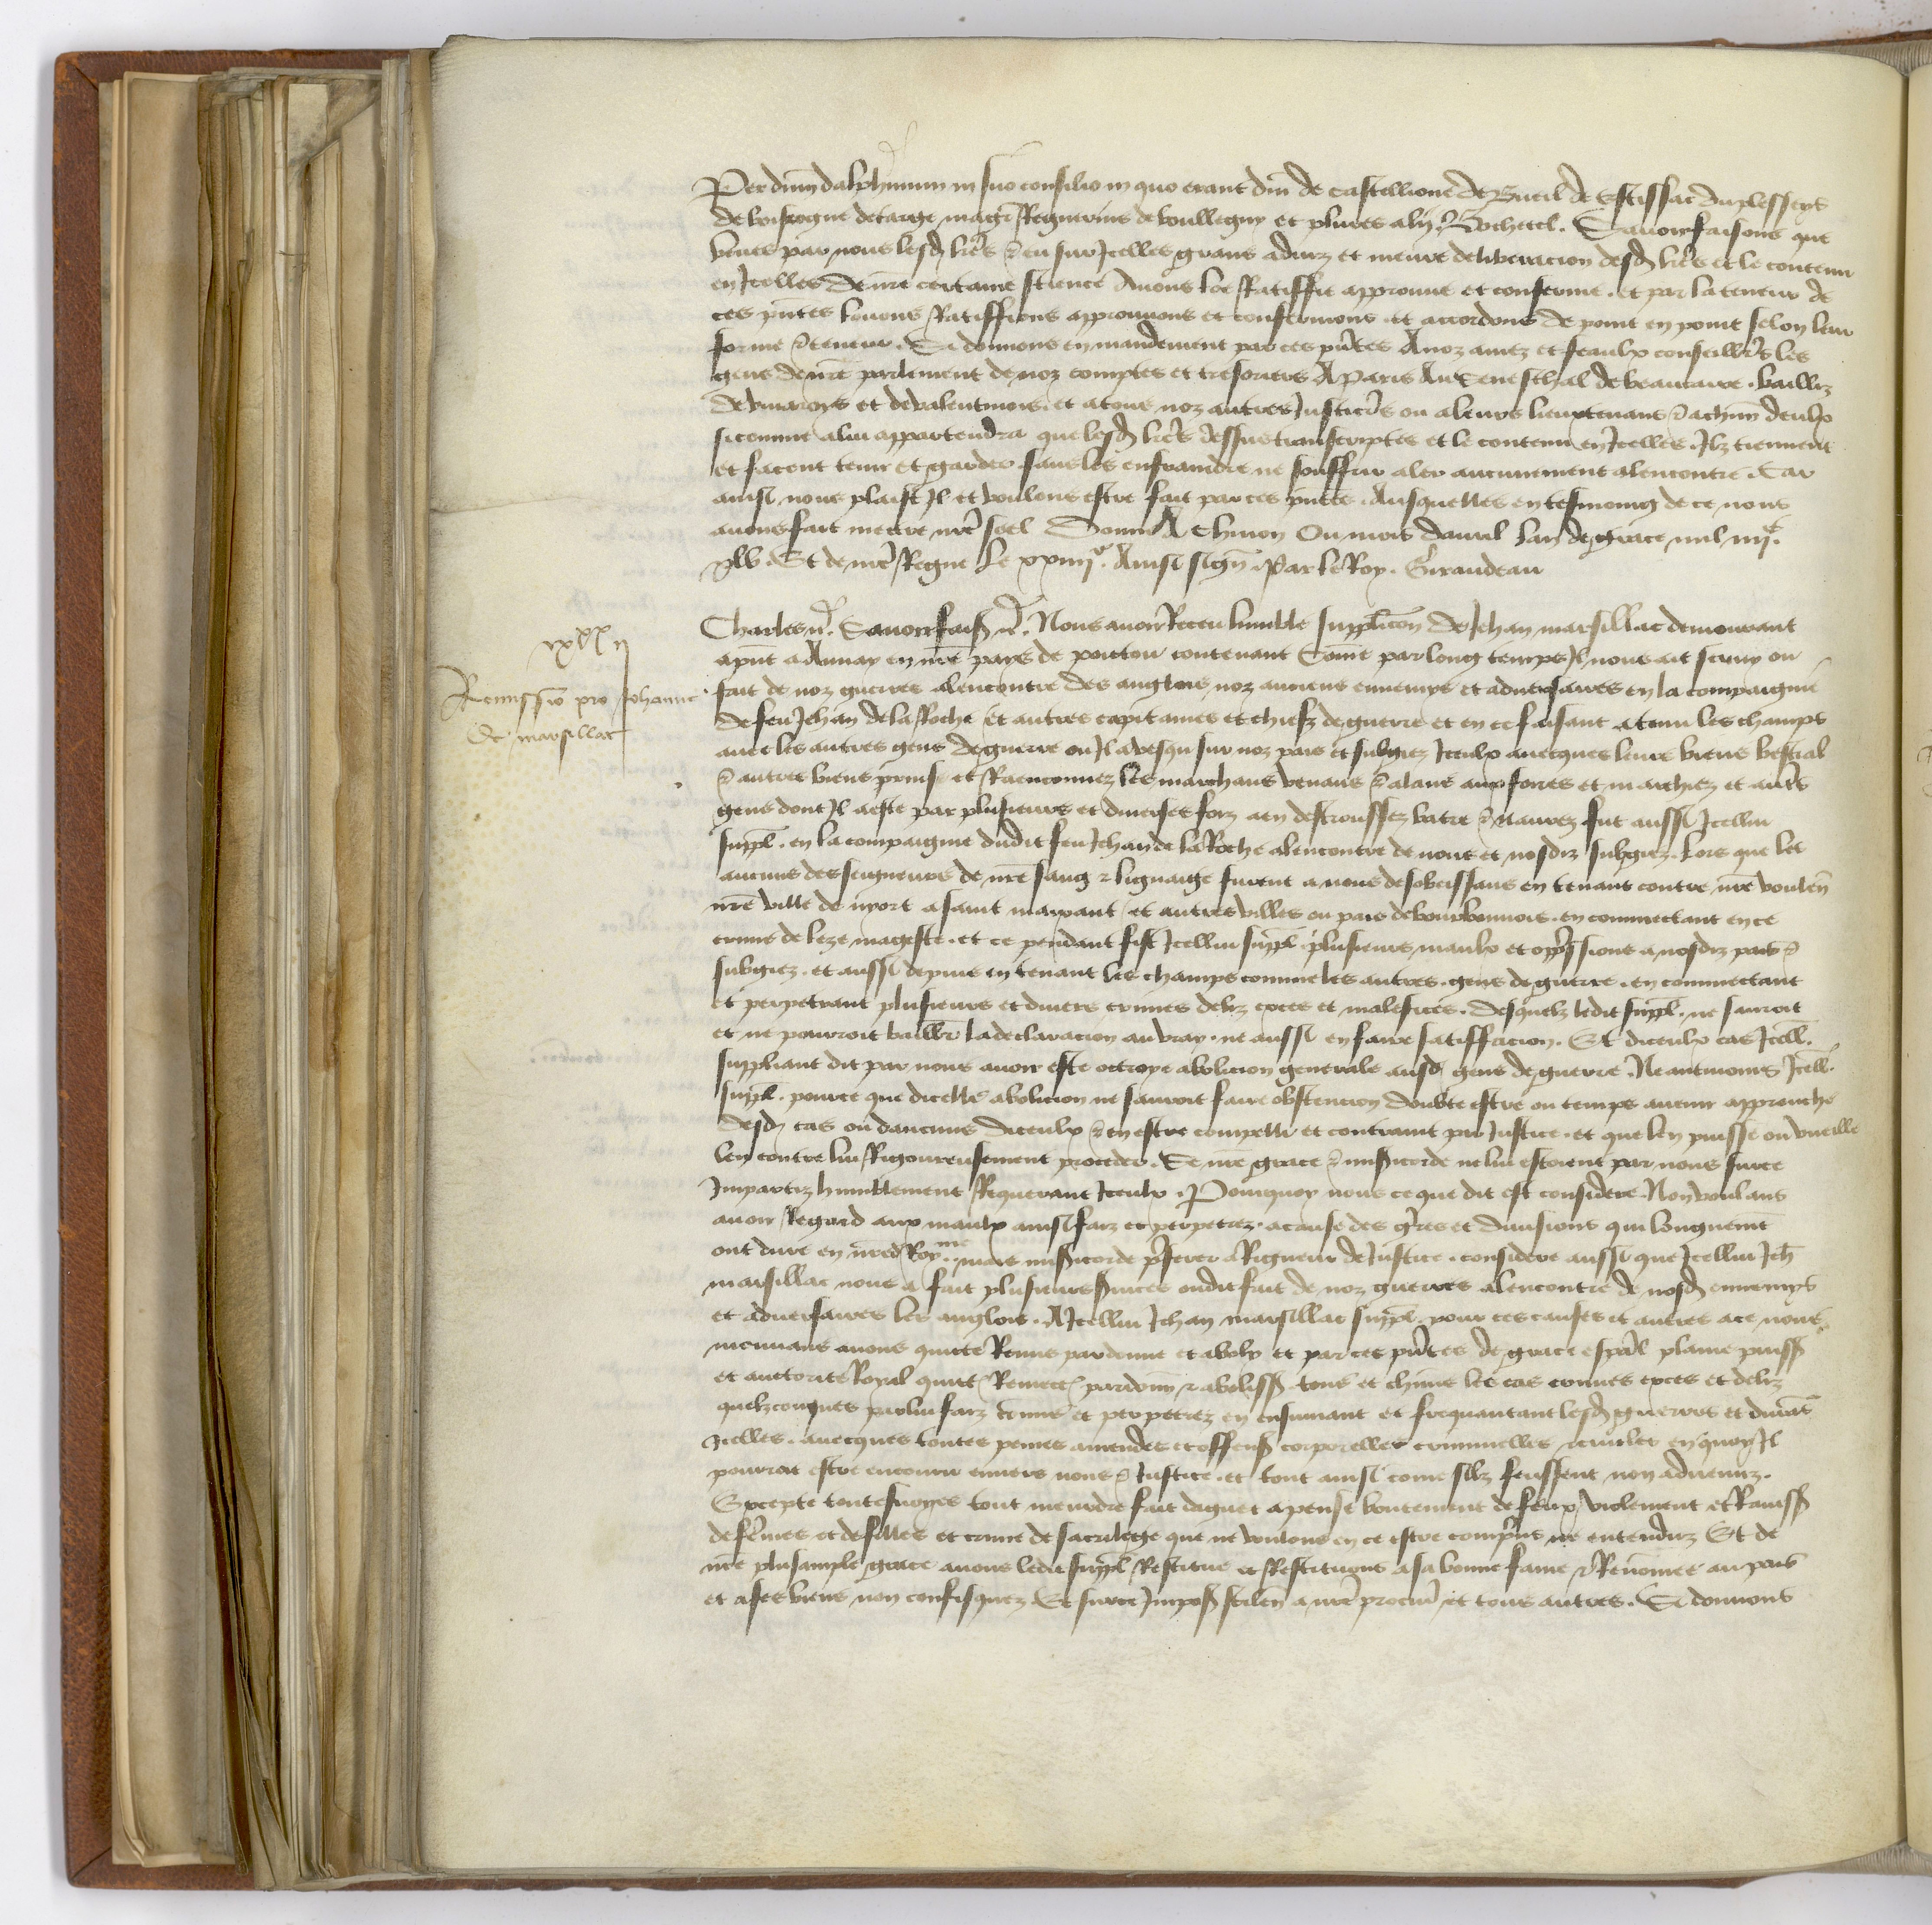 Per dnm dalphinum in suo consilio in quo erant dni de castellione de Bueil de Estissac du plesseys
de boisrogue de targe magr Regnerius de boullegny et plures alij. Bochetel. Sauoir faisons que
veues par nous lesd lres & eu sur Icelles grans aduiz et meure deliberacion desd lres et le contenu
en Icelles De nre certaine science Auons loe Ratiffie approuue et conferme. et par la teneur de
ces pntes louons Ratiffions approuuons et confermons. et accordons de point en point selon leur
forme & teneur. Si donnons en mandement par ces pntes A noz amez et feaulx conseillrs les
gens de nre parlement de noz comptes et tresoriers A Paris Au Seneschal de beaucaire. bailliz
de viuaroys et de valentinois. et a tous noz autres Justiciers ou a leurs lieuxtenans & a chun deulx
si comme a lui appartendra que lesd lres dessus transcriptes et le contenu en Icelles. Ilz tiennent
et facent tenir et garder sans les enfraindre ne souffrir aler aucunement alencontre. Car
ainsi nous plaist Il et voulons estre fait par ces pntes. Ausquelles en tesmoing de ce nous
auons fait mectre nre seel Donne A Chinon Ou mois dauril lan de grace mil iiijc
xlv. Et de nre Regne le xxiiije. Ainsi signe. Par le Roy. Giraudeau
Charles &c. Sauoir fais &c. Nous auoir Receu lumble supplicon de Jehan marsillac demourant
a pnt a Aunay en nre pays de poictou contenant Come par long temps Il nous ait seruy ou
fait de noz guerres alencontre des anglois noz anciens ennemys et aduersaires en la compaignie
de feu Jehan de la Roche et autres capitaines et chiefz de guerre et en ce faisant a tenu les champs
auec les autres gens de guerre ou Il a vesqu sur noz pais et subgiez Iceulx auecques leurs biens bestial
& autres biens prins et Raenconnez les marchans venans & alans aux foires et marchiez et autrs
gens dont Il a este par plusieurs et diuerses foiz a en destroussez batre & naurez fut aussi Icellui
suppl. en la compaignie dudit feu Jehan de la Roche alencontre de nous et nosdiz subgiez. lors que les
aucuns des seigneurs de nre sang & lignaige furent a nous desobeissans en tenant contre nre voulen
nre ville de nyort a saint maixant et autres villes ou pais de bourbonnois. en commectant en ce
crime de leze mageste. et ce pendant fist Icellui suppl. plusieurs maulx et oppssions a nosdiz pais &
subgiez. et aussi depuis en tenant les champs comme les autres. gens de guerre. en commectant
et perpetrant plusieurs et diuers crimes deliz exces et malefices. desquelz ledit suppl. ne sauroit
et ne pourroit bailler la declaracion au vray. ne aussi en faire satiffacion. Et diceulx cas Icell.
suppliant dit par nous auoir este octroye abolicion generale ausd gens de guerre. Neantmoins Icell.
suppl. pource que dicelle abolicion ne sauroit faire obstencion doubte estre ou temps auenir approuche
desd cas ou daucuns diceulx & en estre compelle et contraint par Justice. et que len puisse ou vueille
len contre lui Rigoureusement proceder. Se nre grace & misicorde ne lui estoient par nous surce
Impartiz humblement Requerant Iceulx. Pourquoy nous ce que dit est considere. Non voulans
auoir Regard aux maulx ainsi faiz et perpetrez. a cause des gres et diuisions qui longuemt
ont dure en nred Roye. mais misicorde pferer a Rigueur de Justice. considere aussi que Icellui Jeh
marsillac nous a fait plusieurs suices ou dit fait de noz guerres alencontre de nosd ennemys
et aduersaires les anglois. A Icellui Jehan marsillac suppl pour ces causes et autres a ce nous
mouuans auons quicte Remis pardonne et aboly et par ces pntes de grace espal plaine puiss
et auctorite Royal quict. Remect. pardonn & aboliss. tous et chuns les cas crimes exces et deliz
quelzconques par lui faiz comis et perpetrez en ensuiuant et frequantant lesd guerres et durat
Icelles. auecques toutes peines amendes et offens corporelles criminelles & ciuiles en quoy Il
pourroit estre encouru enuers nous & Justice. et tout ainsi come silz feussent non aduenuz.
Excepte toutesuoyes tout meurdre fait daguet a pense boutement de feux violement et Rauiss
de femes et de filles et crime de sacrilege que ne voulons en ce estre comprins ne entenduz Et de
nre plus ample grace auons ledit suppl Restitue et Restituons a sa bonne fame & Renomee au pais
et a ses biens non confisquez. Et surce Impos silen a nre procur et tous autres. Si donnons
ixxx ij
Remissio pro Johanne
de marsillac